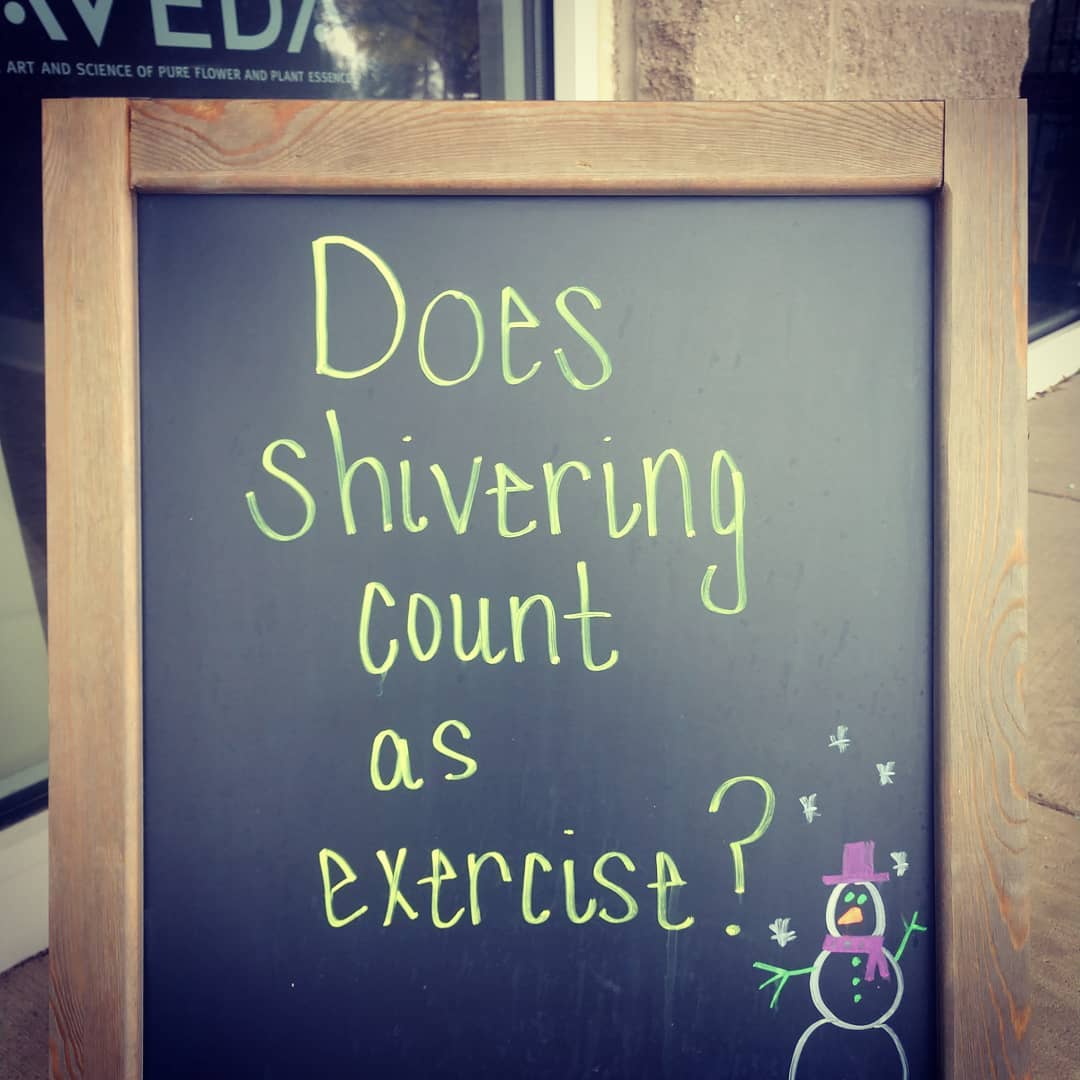 AVEDA
ART AND SCIENCE OF PURE FLOWER AND PLANT ESSENCE
Does
shivering
count
as
exercise?